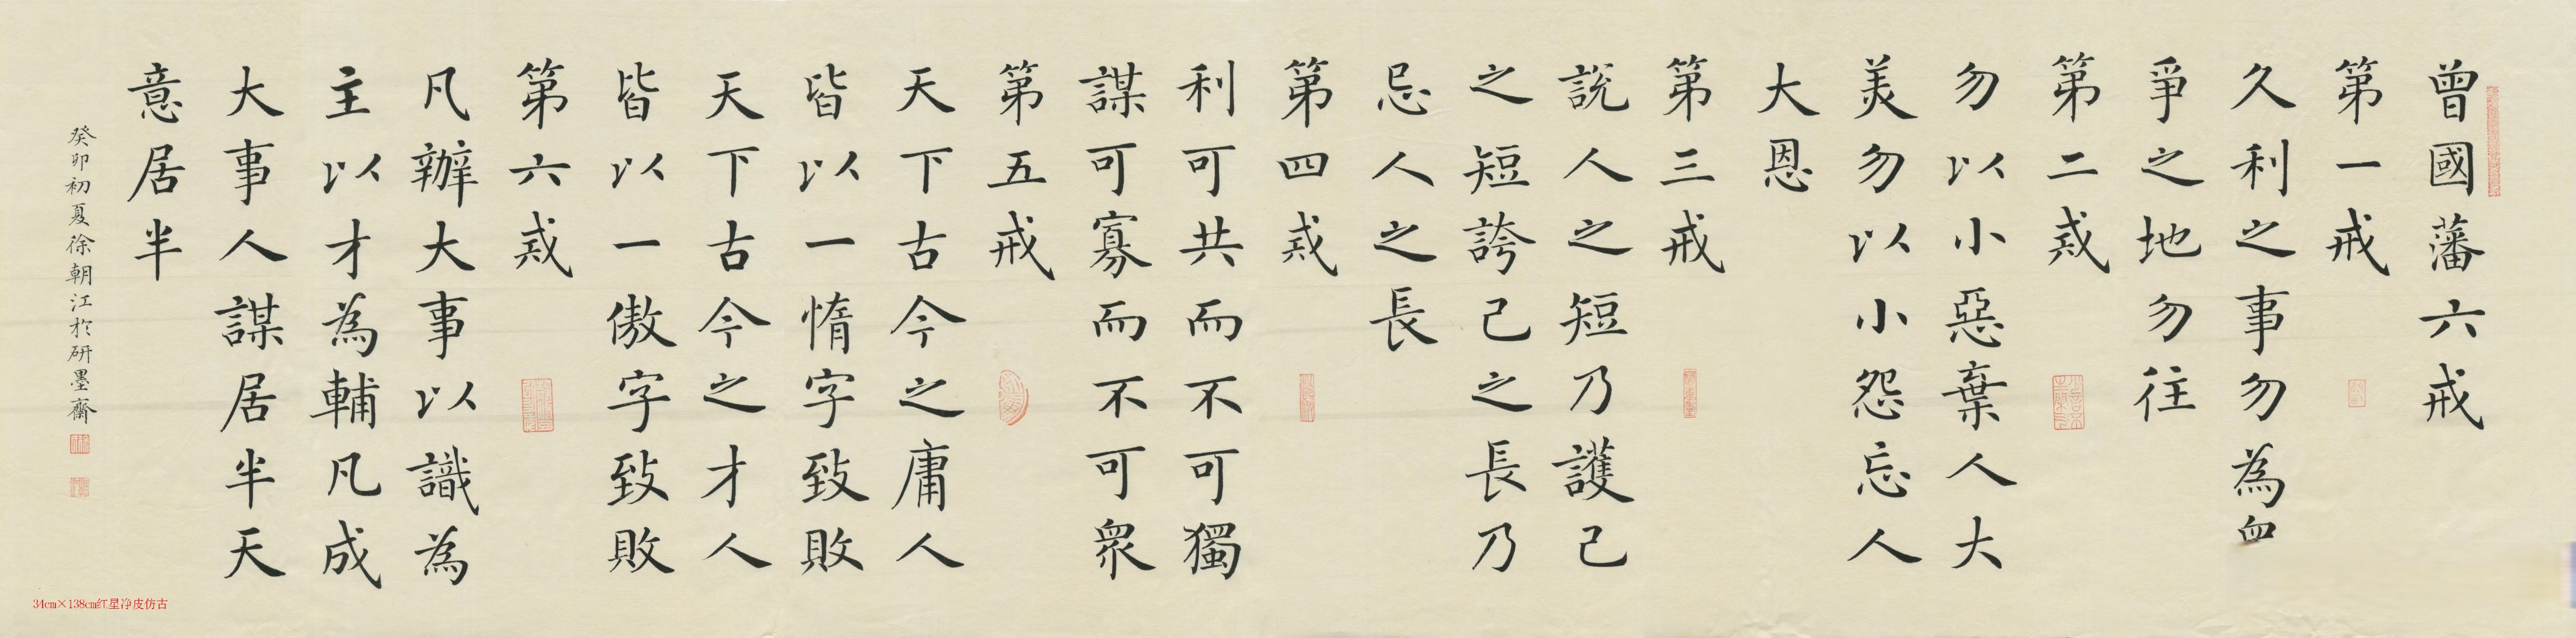 曾國藩六戒
第一戒
久利之事勿為血
爭之地勿往
第二戒
勿以小惡棄人大
美勿以小怨忘人
大恩
第三戒
說人之短乃護己
之短誇己之長乃
忌人之長
第四戒
利可共而不可獨
謀可寡而不可眾
第五戒
天下古今之庸人
皆以一惰字致敗
天下古今之才人
皆以一傲字致敗
第六戒
凡辦大事以識為
主以才為輔凡成
大事人謀居半天
意居半
癸卯初夏徐朝江於研墨齋
34cm×138cm红星净皮仿古